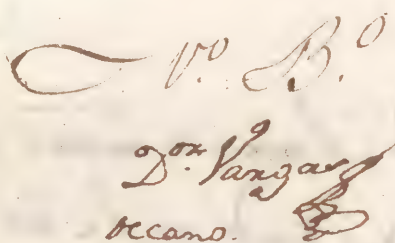 V.º B.º
D.or Vargas
Decano.